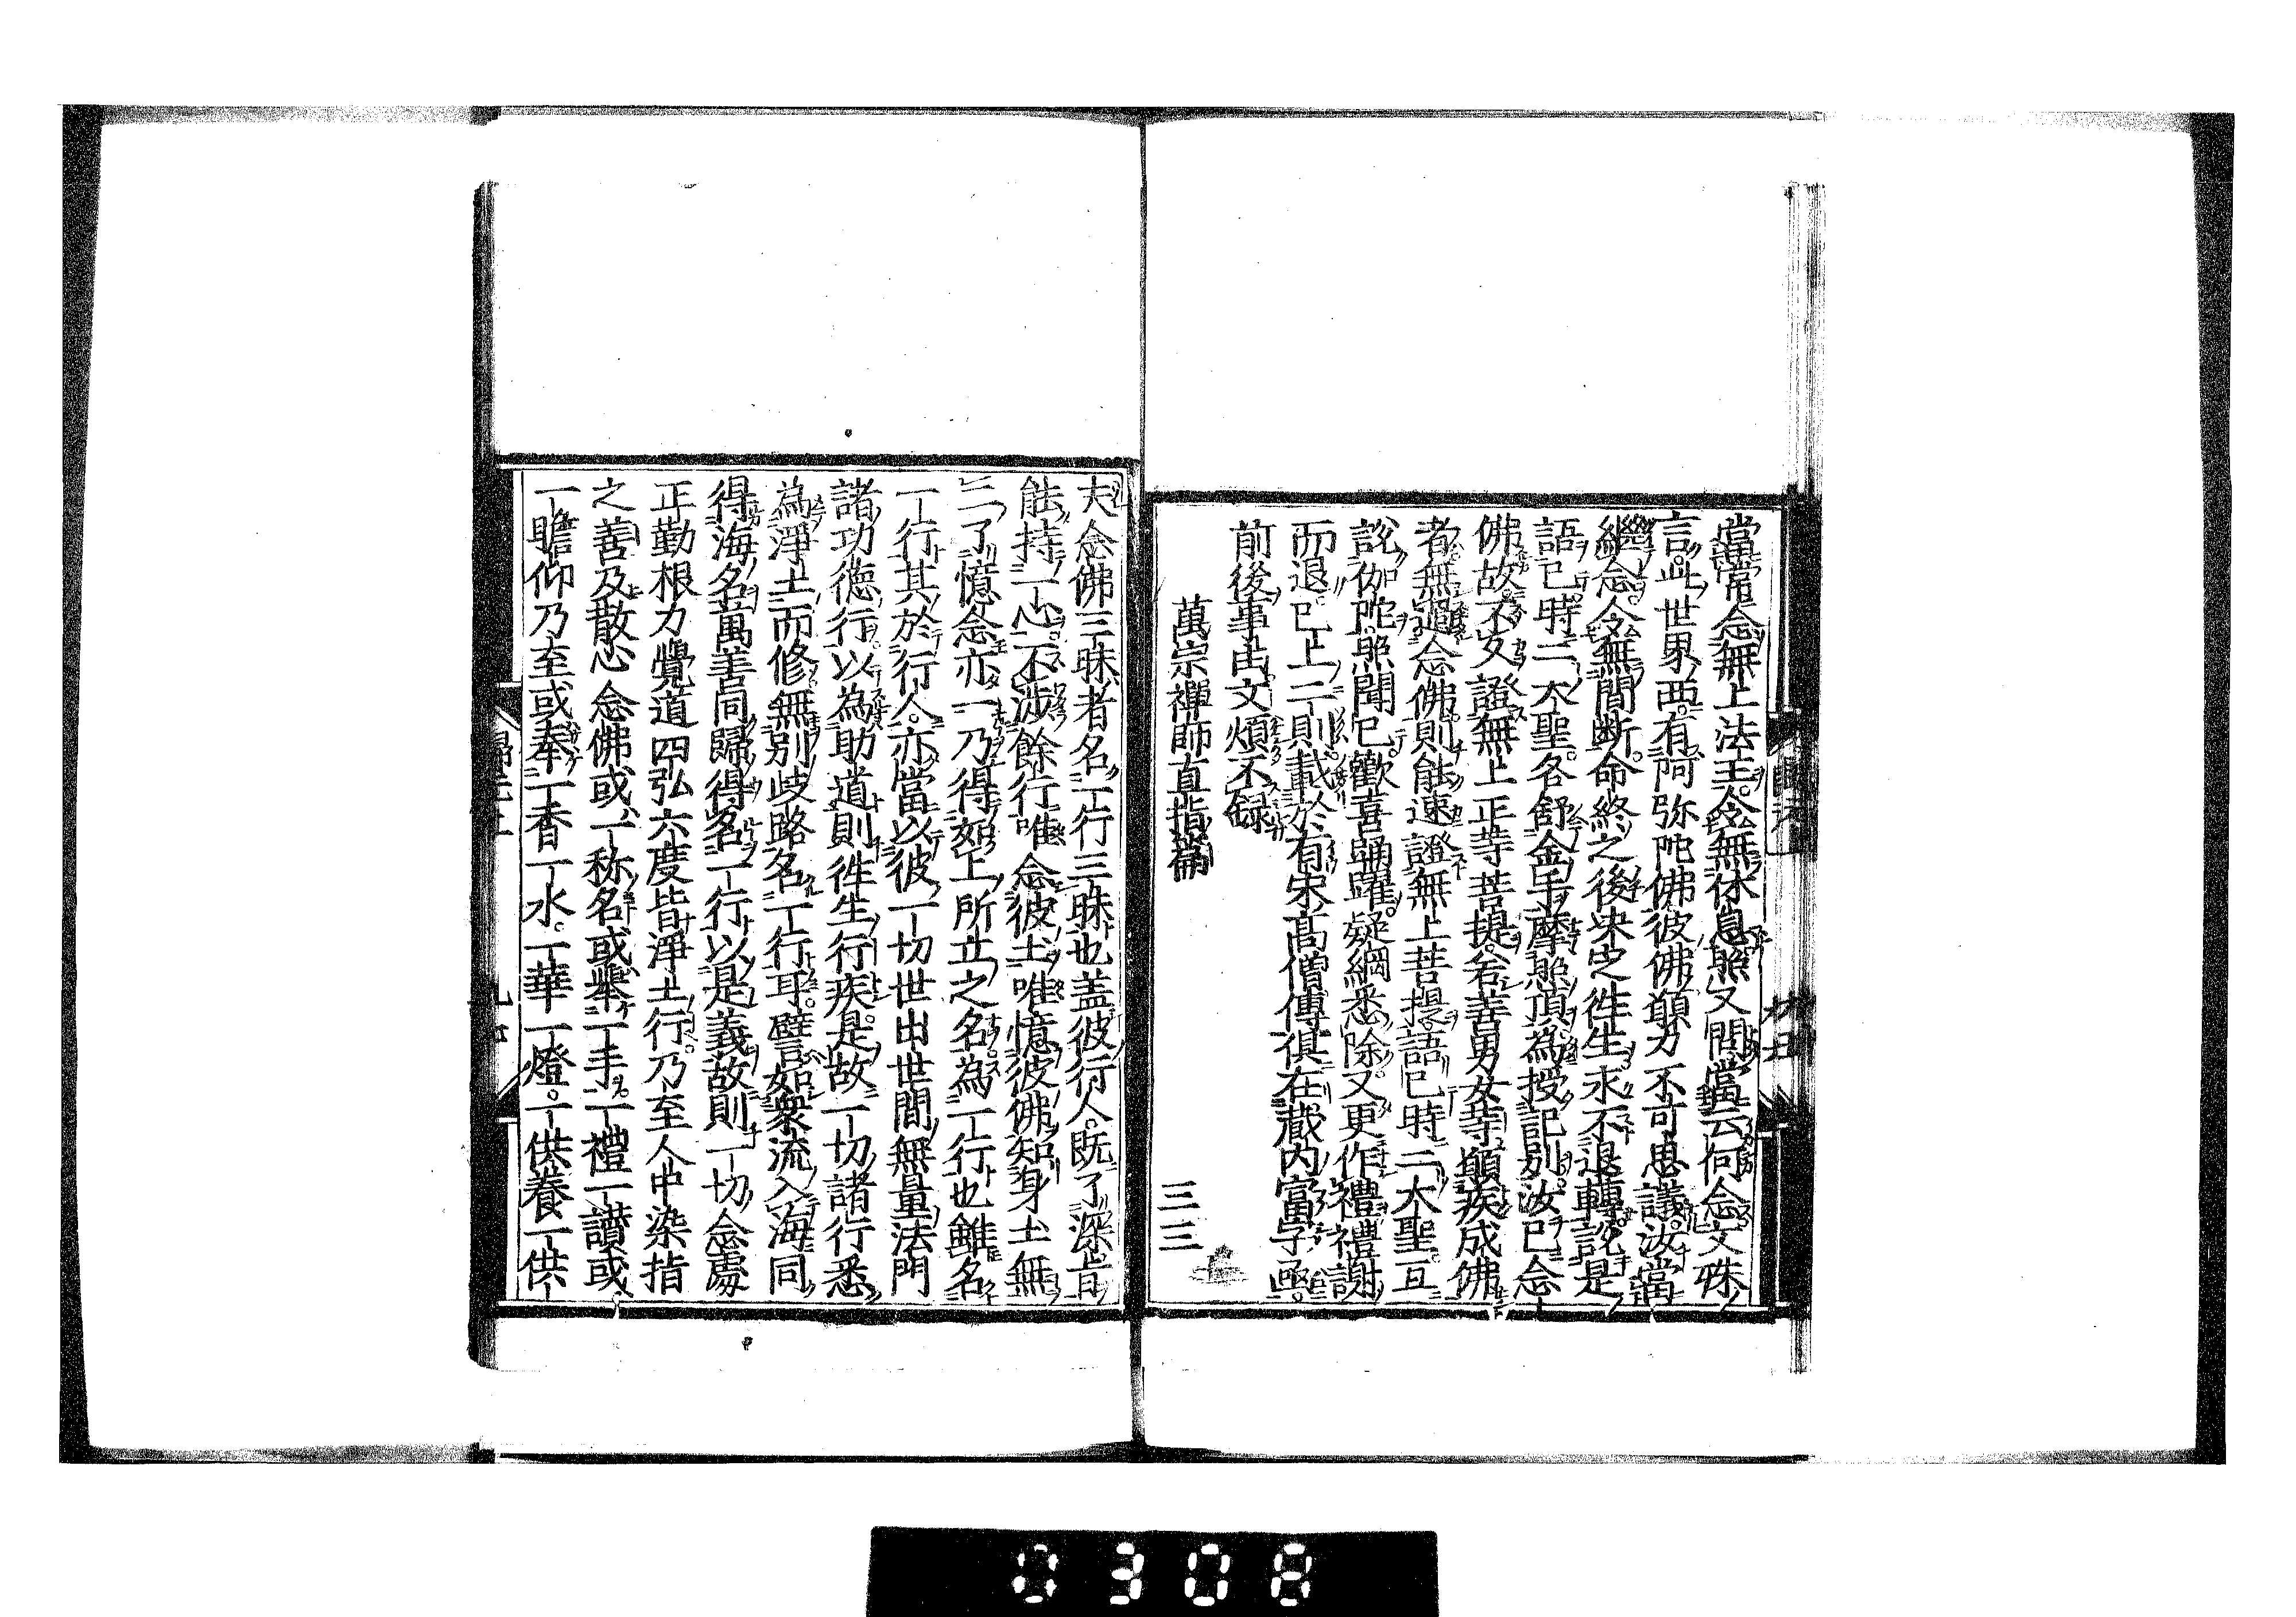 當常念無上法王。令無休息照又問當云何念文殊
言。此世界西。有阿弥陀佛彼佛願力不可思議。汝當
繼念。令無間断。命終之後決定往生永不退轉。說是
語已。時二大聖。各舒金手摩照頂。為授記別。汝已念
佛故。不久證無上正等菩提。若善男女等願疾成佛
者。無過念佛。則能速證無上菩提。語已時二大聖互
說伽陀。照聞已。歡喜踊躍。疑網悉除。又更作禮。禮謝
而退。已上二則。載於有宋高僧傳。俱在藏內富字函。
前後事由文煩不録
萬宗禪師直指篇
三三
夫念佛三昧者名一行三昧也盖彼行人。既了深旨
能持一心。不涉餘行唯念彼土。唯憶彼佛。知身土無
二。了憶念亦一。乃得如上所立之名。為一行也雖名
一行其於行人。亦當以彼一切世出世間無量法門
諸功德行。以為助道則徃生行疾。是故一切諸行悉
為淨土而修。無別歧路名一行耳。譬如衆流入海同
得海名。萬善同歸得名一行以是義故則一切念處
正勤根力覺道四弘六度皆淨土行。乃至人中染指
之善及散心念佛或一称名或舉一手一禮一讃或
一瞻仰乃至或奉一香一水。一華一燈。一供養一供
0308